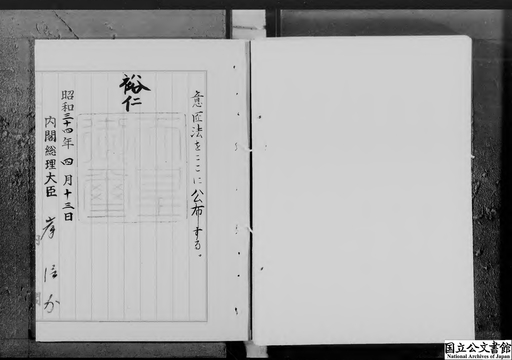 意匠法をここに公布する。
裕仁
天皇
御璽
昭和三十四年四月十三日
内閣総理大臣 岸信介
国立公文書館
National Archives of Japan